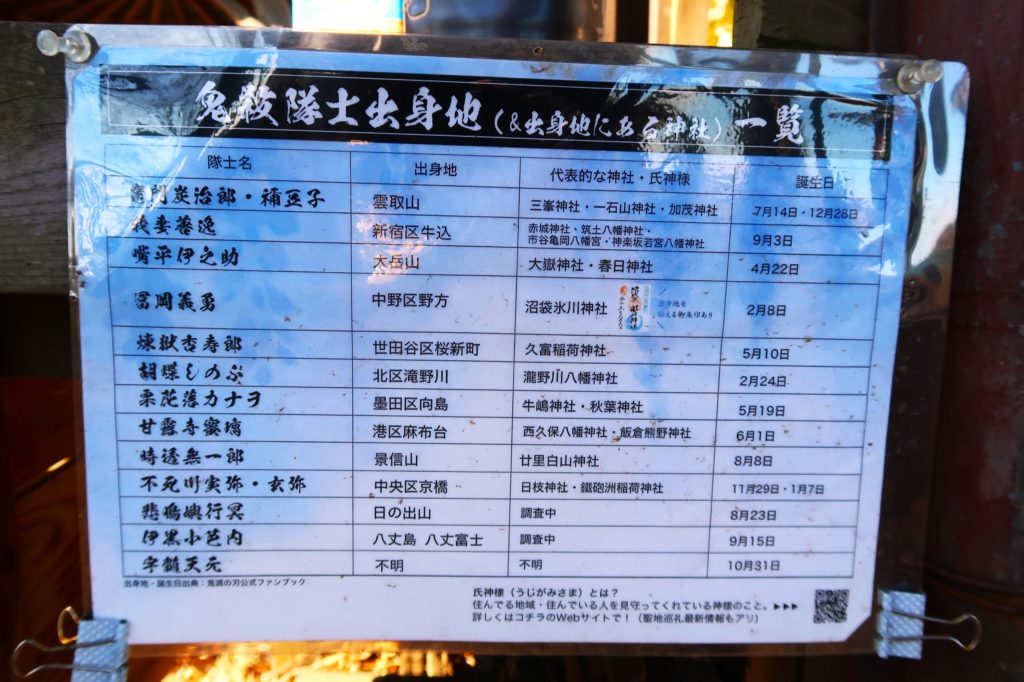 鬼殺隊士出身地（&出身地にある神社）一覧
隊士名 出身地 代表的な神社・氏神様 誕生日
竈門炭治郎・禰豆子 雲取山 三峯神社・一石山神社・加茂神社 7月14日・12月28日
我妻善逸 新宿区牛込 赤城神社・筑土八幡神社・
市谷亀岡八幡宮・神楽坂若宮八幡神社 9月3日
嘴平伊之助 大岳山 大嶽神社・春日神社 4月22日
冨岡義勇 中野区野方 沼袋氷川神社 出身地を
伝える御朱印あり 2月8日
煉獄杏寿郎 世田谷区桜新町 久富稲荷神社 5月10日
胡蝶しのぶ 北区滝野川 瀧野川八幡神社 2月24日
栗花落カナヲ 墨田区向島 牛嶋神社・秋葉神社 5月19日
甘露寺蜜璃 港区麻布台 西久保八幡神社・飯倉熊野神社 6月1日
時透無一郎 景信山 廿里白山神社 8月8日
不死川実弥・玄弥 中央区京橋 日枝神社・鐵砲洲稲荷神社 11月29日・1月7日
悲鳴嶼行冥 日の出山 調査中 8月23日
伊黒小芭内 八丈島 八丈富士 調査中 9月15日
宇髄天元 不明 不明 10月31日
出身地・誕生日出典：鬼滅の刃公式ファンブック
氏神様（うじがみさま）とは？
住んでる地域・住んでいる人を見守ってくれている神様のこと。▶▶▶
詳しくはコチラのWebサイトで！（聖地巡礼最新情報もアリ）